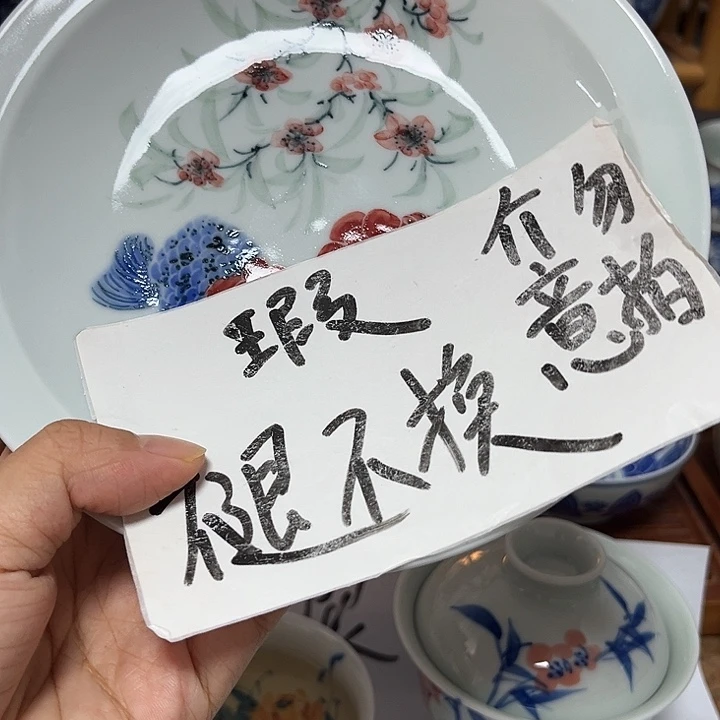 瑕
介意
勿拍
不退不换